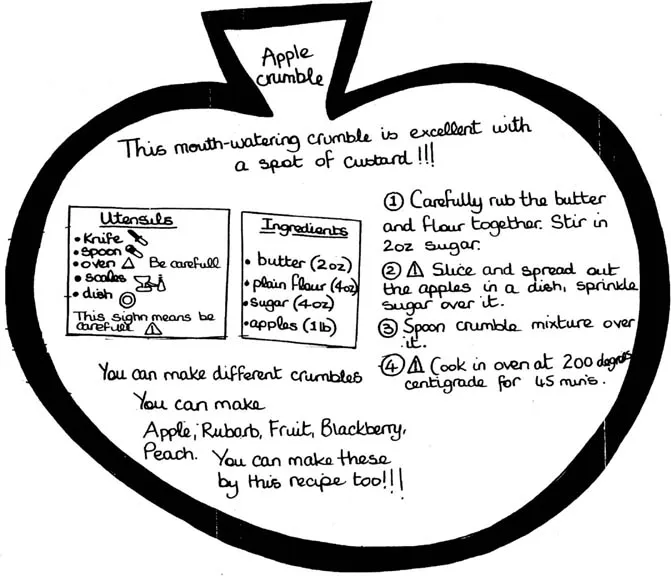 Apple
crumble
This mouth-watering crumble is excellent with
a spot of custard!!!
Utensils
• Knife
• spoon
• oven ⚠ Be carefull
• scales
• dish
This sighn means be
carefull ⚠
Ingredients
• butter (2oz)
• plain flour (4oz)
• sugar (4oz)
• apples (1lb)
① Carefully rub the butter
and flour together. Stir in
2oz sugar.
② ⚠ Slice and spread out
the apples in a dish, sprinkle
sugar over it.
③ Spoon crumble mixture over
it.
④ ⚠ Cook in oven at 200 degrees
centigrade for 45 mins.
You can make different crumbles
You can make
Apple, Rubarb, Fruit, Blackberry,
Peach. You can make these
by this recipe too!!!